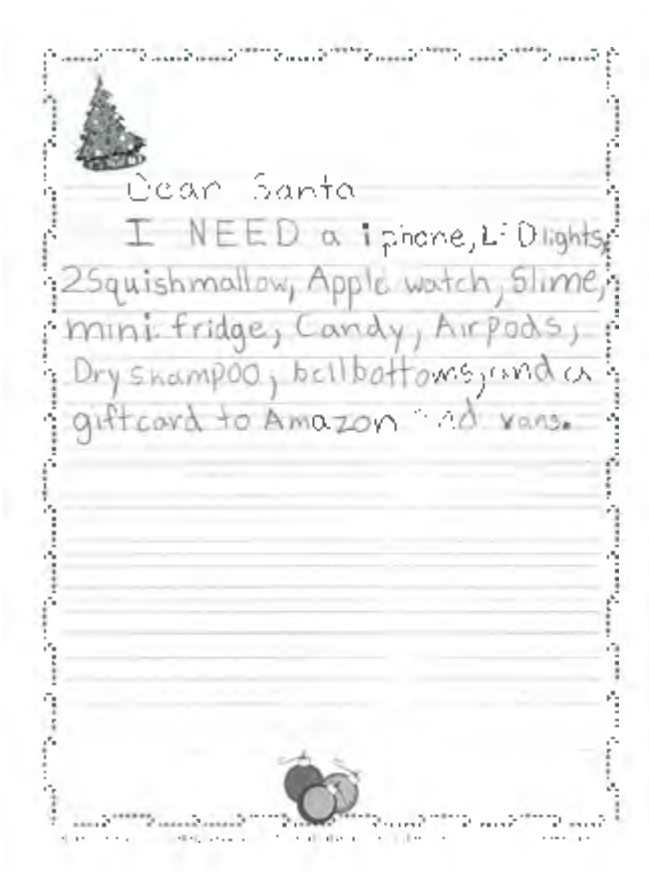 Dear Santa
I NEED a iphone, LED lights,
2 Squishmallow, Apple watch, Slime,
mini fridge, Candy, Airpods,
Dry Shampoo, bellbottoms, and a
giftcard to Amazon and vans.